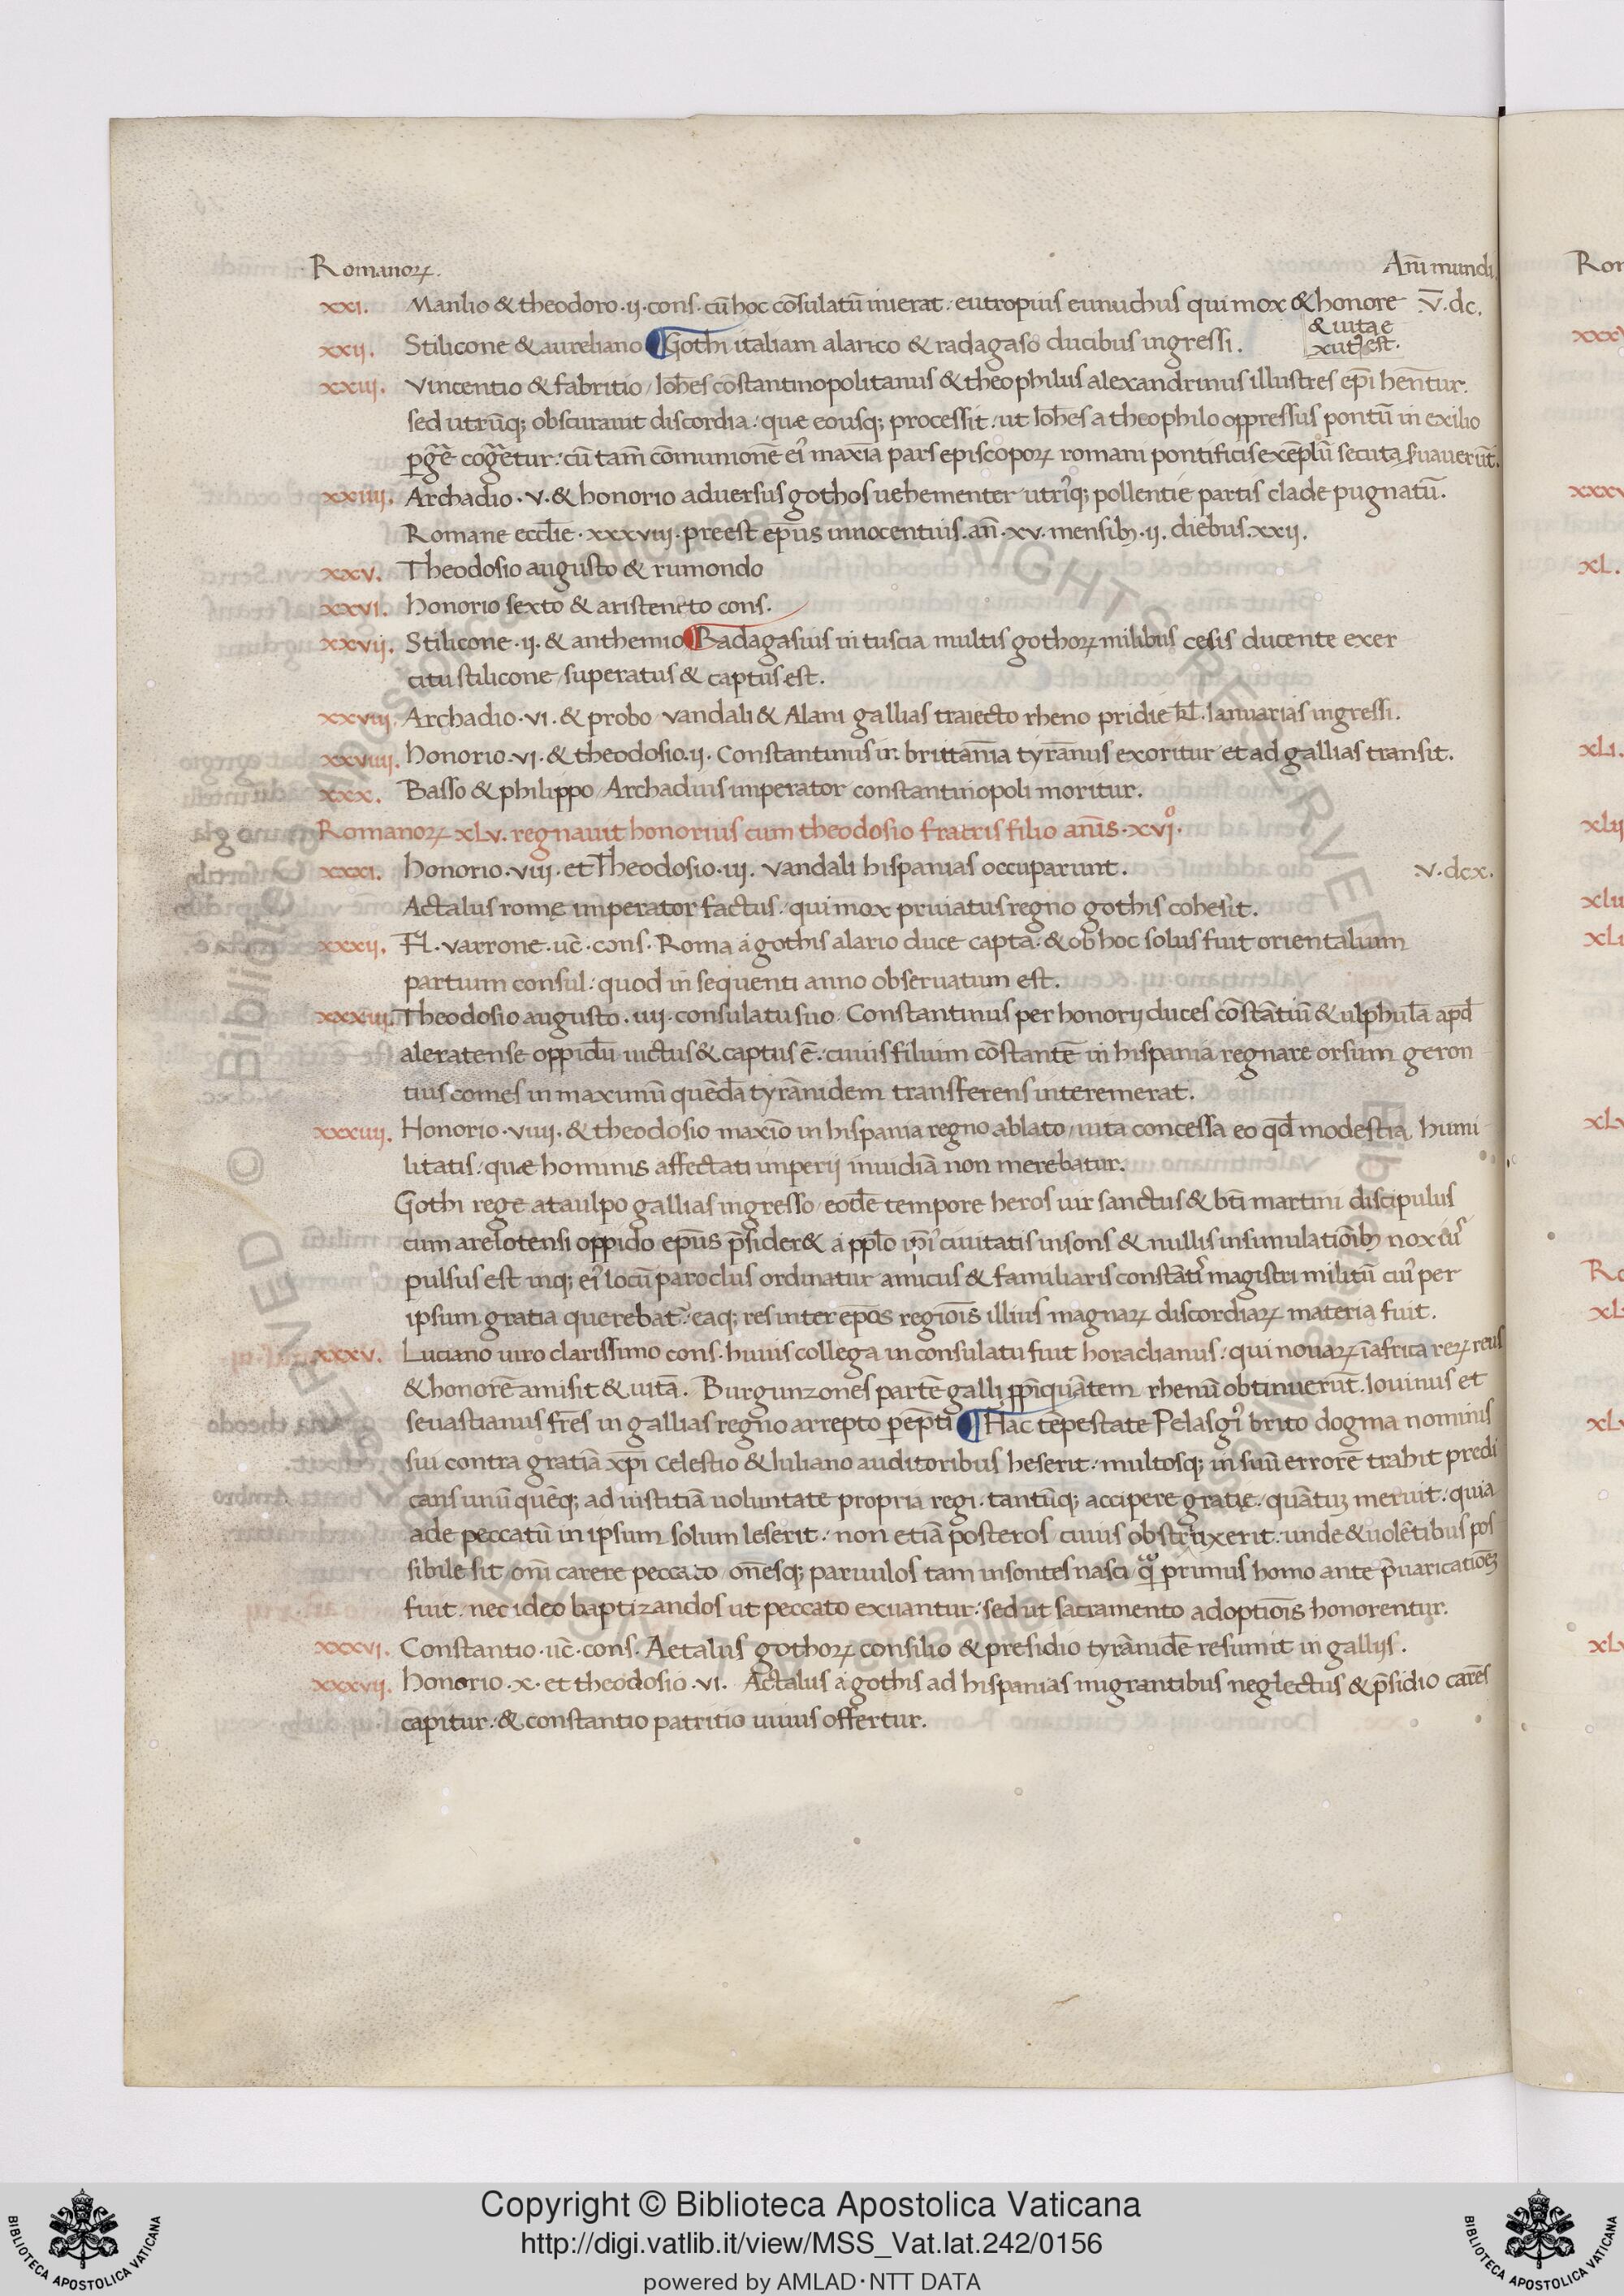 Romanoꝝ.
Anni mundi
xxi. Manlio & theodoro .ij. cons. cū hoc cōsulatū inierat: eutropius eunuchus qui mox & honore .v̄.dc.
& uita e
xut9 est.
xxii. Stilicone & aureliano Gothi italiam alarico & radagaso ducibus ingressi.
xxiii. Vincentio & fabritio / Ioh̄es cōstantinopolitanus & theophilus alexandrinus illustres ep̄i hēntur.
sed utrūq; obscurauit discordia: quæ eousq; processit: ut Ioh̄es a theophilo oppressus pontū in exilio
ꝑgr̄e cogr̄etur: cū tam̄ cōmunionē ei9 maxīa pars episcopoꝝ romani pontificis exēplū secuta ẜuauerūt.
xxiiii. Archadio .v. & honorio aduersus gothos uehementer utri9q; pollentie partis clade pugnatū.
Romane eccl̄ie .xxxviii. preest ep̄us innocentius. an̄ .xv. mensib; .ij. diebus .xxii.
xxv. Theodosio augusto & rumondo
xxvi. honorio sexto & aristeneto cons.
xxvij. Stilicone .ij. & anthemio Badagasius in tuscia multis gothoꝝ milibus cesis ducente exer
citu stilicone / superatus & captus est.
xxviii. Archadio .vi. & probo / vandali & Alani gallias traiecto rheno pridie kl̄. Ianuarias ingressi.
xxviiii. honorio .vi. & theodosio .ij. Constantinus in brittan̄ia tyrānus exoritur et ad gallias transit.
xxx. Basso & philippo / Archadius imperator constantinopoli moritur.
Romanoꝝ xLv. regnauit honorius cum theodosio fratris filio annis .xvi.
xxxi. honorio .viii. et Theodosio .iii. vandali hispanias occuparunt. .v.dcx.
Actalus rome imperator factus: qui mox priuatus regno gothis cohesit.
xxxii. Fl. varrone .uc̄. cons. Roma a gothis alario duce capta: & ob hoc solus fuit orientalium
partium consul: quod in sequenti anno obseruatum est.
xxxiii. Theodosio augusto .iiij. consulatu suo. Constantinus per honorij duces cōstātiū & ulphulā apd̄
aleratense oppidū uictus & captus ē: cuius filium cōstantē in hispania regnare orsum geron
tius comes in maximū quēdā tyrānidem transferens interemerat.
xxxiiij. Honorio .viiij. & theodosio maxīo in hispania regno ablato / uita concessa eo qd̄ modestia humi
litatis: quæ hominis affectati imperij inuidiā non merebatur.
Gothi rege ataulpo gallias ingresso / eodē tempore heros uir sanctus & bt̄i martini discipulus
cum arelotensi oppido ep̄us p̄sider& a pp̄lo ip̄i9 ciuitatis insons & nullis insimulatiōib; noxiu9
pulsus est inq; ei9 locū paroclus ordinatur amicus & familiaris constāti9 magistri militū cui9 per
ipsum gratia querebat̄: eaq; res inter ep̄os regiōis illius magnaꝝ discordiaꝝ materia fuit.
xxxv. Luciano uiro clarissimo cons. huius collega in consulatu fuit horaclianus: qui nouaꝝ ī africa reꝝ reus
& honorē amisit & uitā. Burgunzones partē galli ꝓpīquātem rhenū obtinuerūt. Iouinus et
seuastianus fr̄es in gallias regno arrepto perēpti Hac tēpestate Pelasgi9 brito dogma nominis
sui contra gratiā xp̄i celestio & Iuliano auditoribus heserit: multosq; in suū errorē trahit predi
cans unū quēq; ad iustitiā uoluntate propria regi: tantūq; accipere gratie: quātuꝫ meruit: quia
ade peccatū in ipsum solum leserit: non etiā posteros / cuius obstruxerit: unde & uolētibus pos
sibile sit om̄i carere peccato / om̄esq; paruulos tam insontes nasci q̄ primus homo ante p̄uaricatiōeꝫ
fuit: nec ideo baptizandos ut peccato exuantur: sed ut sacramento adoptiōis honorentur.
xxxvi. Constantio .uc̄. cons. Aetalus gothoꝝ consilio & presidio tyrānidē resumit in gallijs.
xxxvij. honorio .x. et theodosio .vi. Actalus a gothis ad hispanias migrantibus neglectus & p̄sidio carēs
capitur: & constantio patritio uiuus offertur.
Copyright © Biblioteca Apostolica Vaticana
http://digi.vatlib.it/view/MSS_Vat.lat.242/0156
powered by AMLAD·NTT DATA
BIBLIOTECA APOSTOLICA VATICANA
BIBLIOTECA APOSTOLICA VATICANA